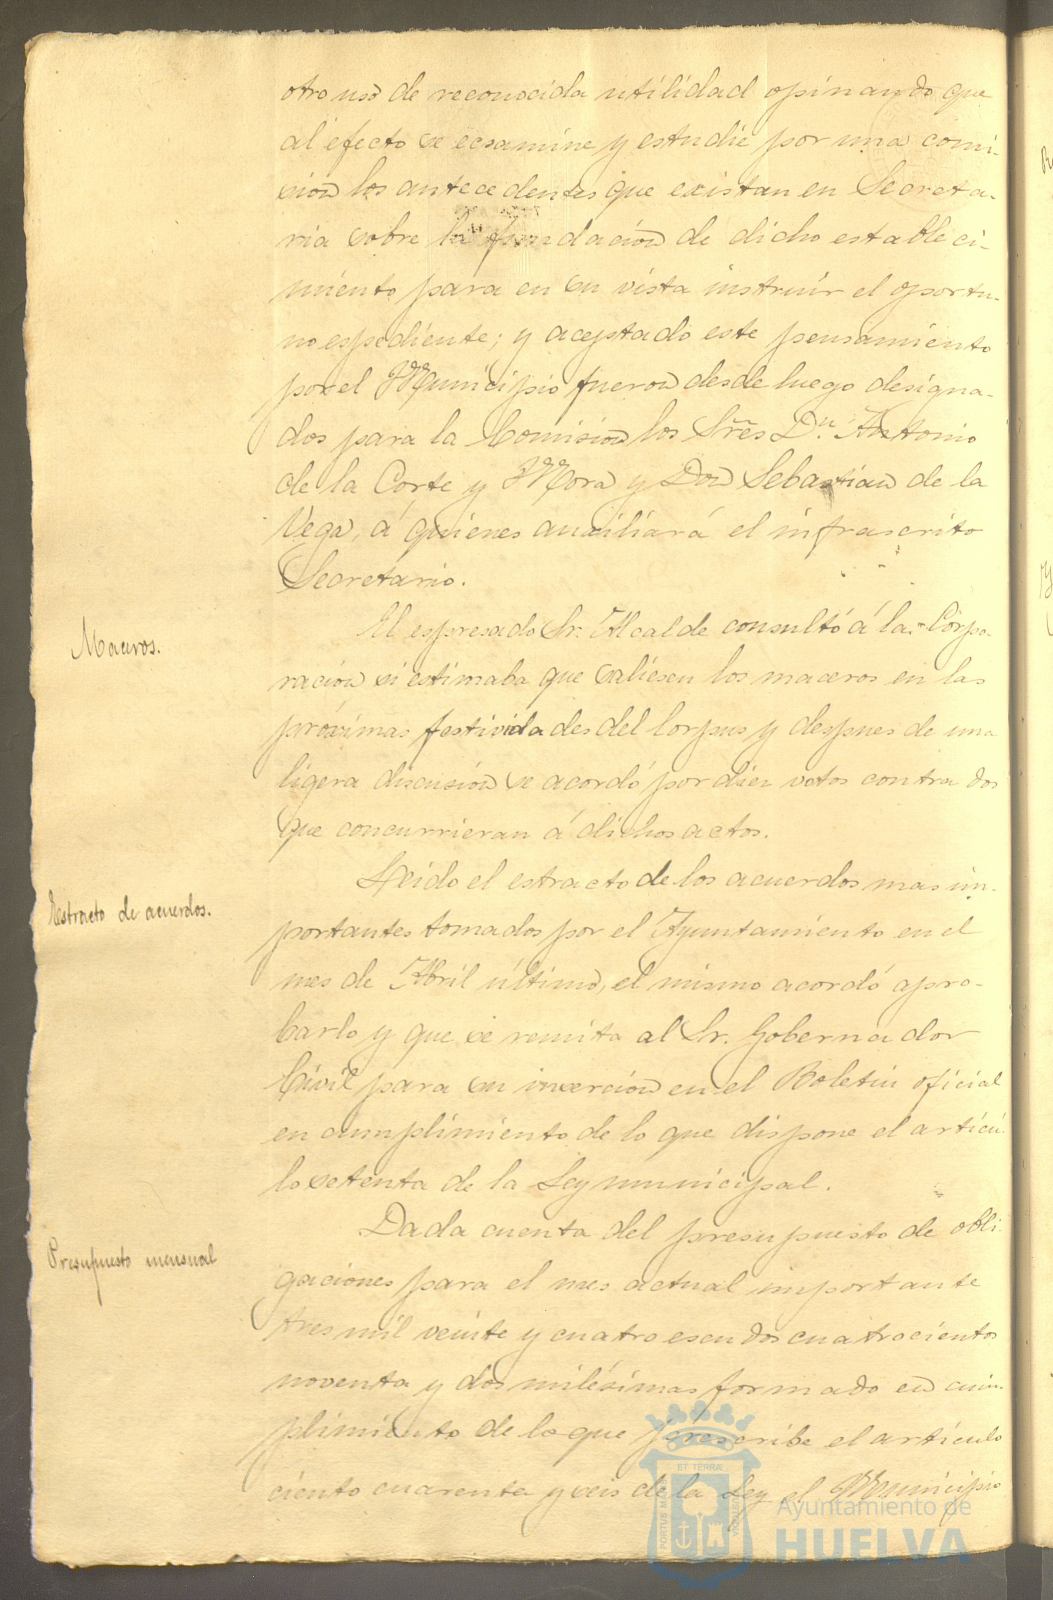 otro uso de reconocida utilidad opinando que
al efecto se ecsamine y estudie por una comi-
sion los antecedentes que existan en Secreta-
ria sobre la fundacion de dicho estableci-
miento para en su vista instruir el oportu-
no espediente; y aceptado este pensamiento
por el Municipio fueron desde luego designa-
dos para la Comision los Sres Dn. Antonio
de la Corte y Mora y Don Sebastian de la
Vega, á quienes auxiliará el infrascrito
Secretario.
Maceros.
El espresado Sr. Alcalde consultó á la Corpo-
racion si estimaba que saliesen los maceros en las
próximas festividades del Corpus y despues de una
ligera discusion se acordó por diez votos contra dos
que concurrieran á dichos actos.
Estracto de acuerdos.
Leido el estracto de los acuerdos mas im-
portantes tomados por el Ayuntamiento en el
mes de Abril último, el mismo acordó apro-
barlo y que se remita al Sr. Gobernador
Civil para su insercion en el Boletin oficial
en cumplimiento de lo que dispone el artícu-
lo setenta de la Ley municipal.
Presupuesto mensual
Dada cuenta del presupuesto de obli-
gaciones para el mes actual importante
tres mil veinte y cuatro escudos cuatrocientos
noventa y dos milésimas formado en cum-
plimiento de lo que prescribe el artículo
ciento cuarenta y seis de la Ley el Municipio
PORTUS MARIS ET TERRAE CUSTODIA
Ayuntamiento de
HUELVA